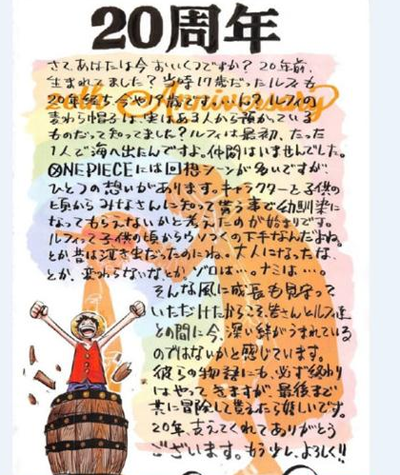 20周年
20th Anniversary
さて、あなたは今おいくつですか?20年前、
生まれてました?当時17歳だったルフィも
20年経ち今や19歳です。いいん?ルフィの
麦わら帽子は、実はある人から預かっている
ものだって知ってました?ルフィは最初、たった
1人で海へ出たんですよ。仲間はいませんでした。
ONE PIECEには回想シーンが多いですが、
ひとつの想いがあります。キャラクターと子供の
頃からみなさんに知って貰う事で幼馴染に
なってもらえないかと考えたのが始まりです。
ルフィって子供の頃からウソつくの下手なんだよね。
とか昔は泣き虫だったのにね、大人になったな、
とか、変わらないなとか。ゾロは…。ナミは…。
そんな風に成長も見守って
いただけたからこそ、皆さんとルフィ達
との間に今、深い絆がうまれている
のではないかと感じています。
彼らの物語にも、必ず終わり
はやってきますが、最後まで
共に冒険して貰えたら嬉しいです。
20年、支えてくれてありがとう
ございます。もう少し、よろしく!!